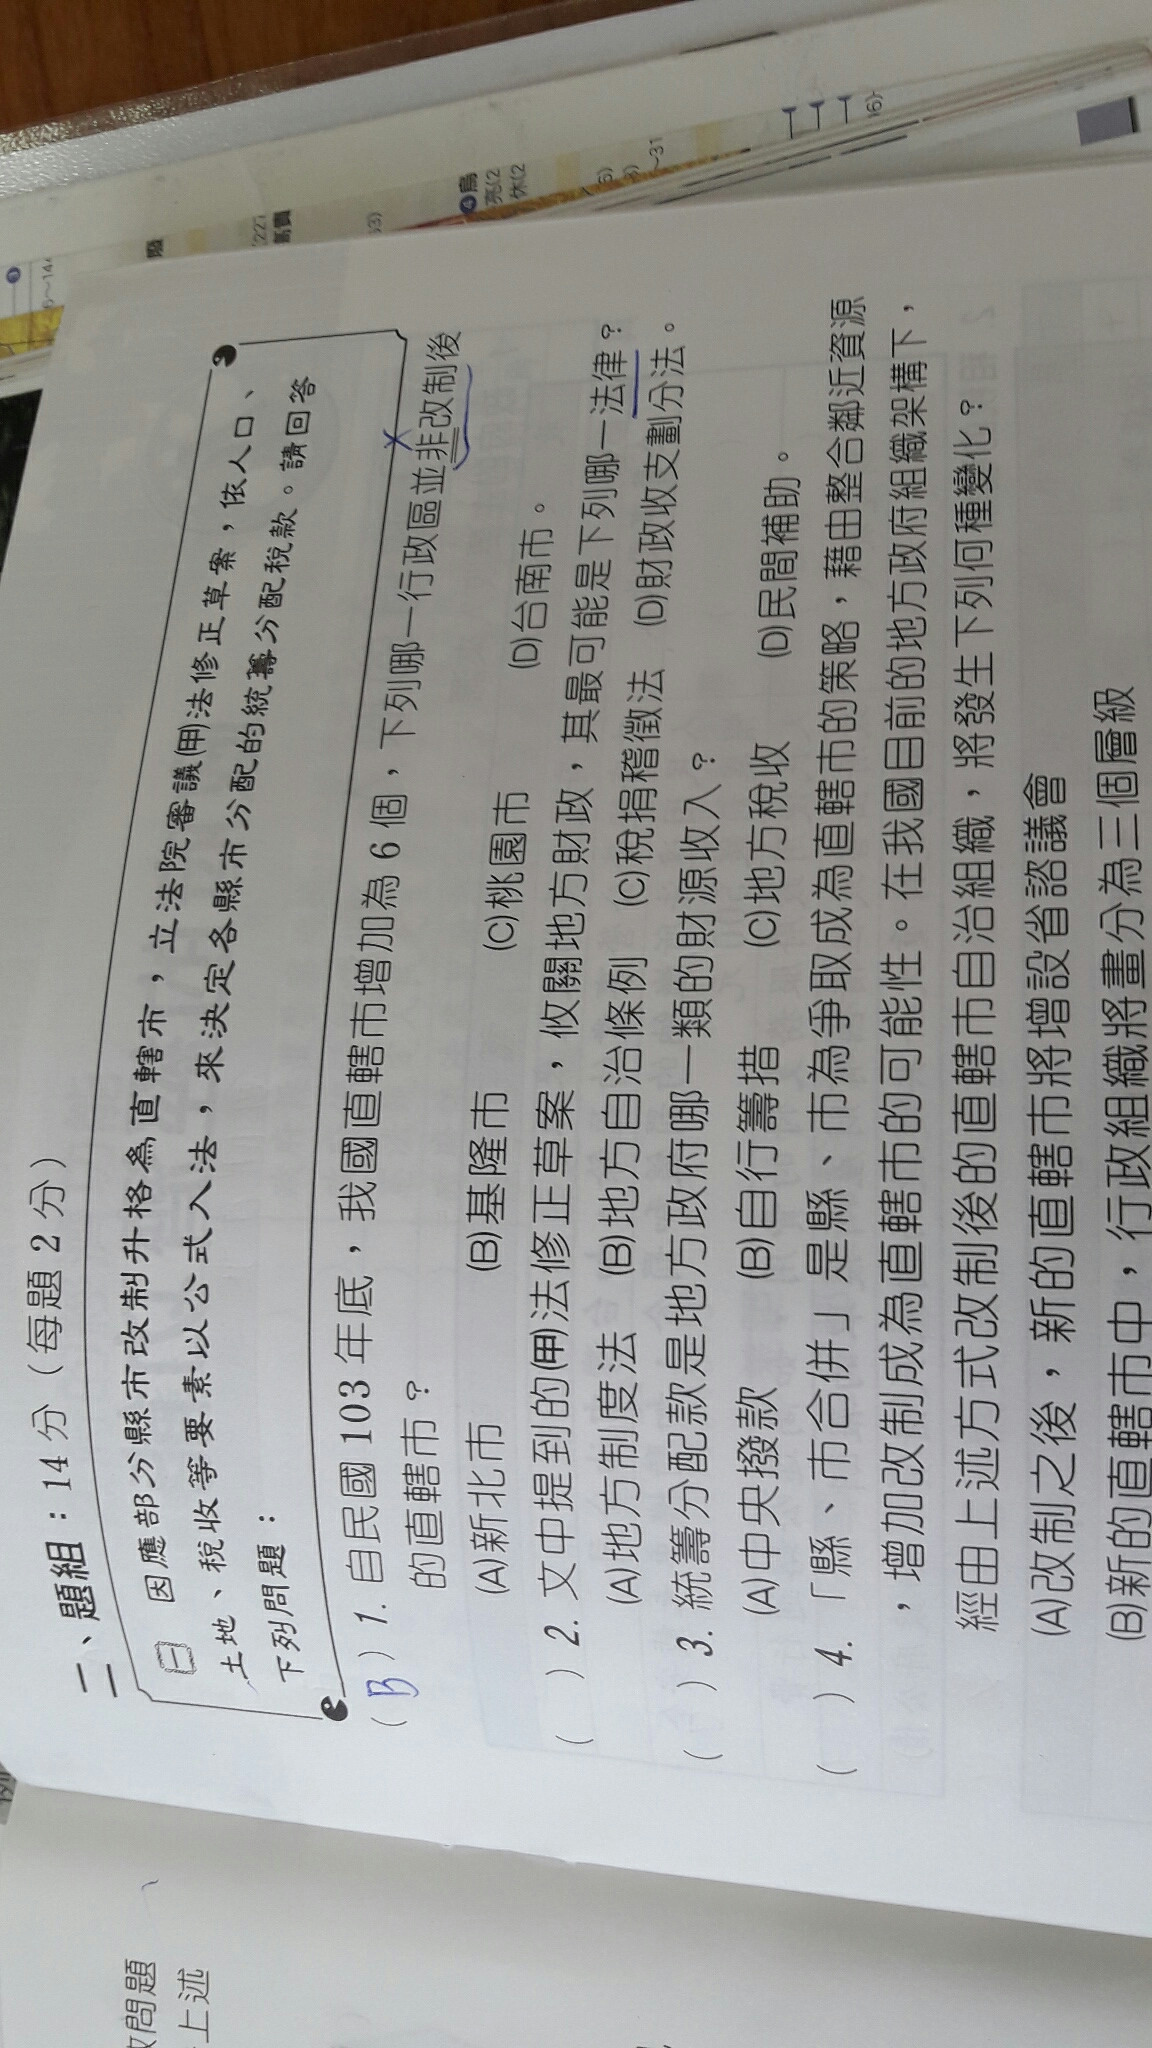 二、題組：14 分（每題 2 分）
㈠ 因應部分縣市改制升格為直轄市，立法院審議(甲)法修正草案，依人口、
土地、稅收等要素以公式入法，來決定各縣市分配的統籌分配稅款。請回答
下列問題：
( B ) 1. 自民國 103 年底，我國直轄市增加為 6 個，下列哪一行政區並非改制後
的直轄市？
(A)新北市 (B)基隆市 (C)桃園市 (D)台南市。
( ) 2. 文中提到的(甲)法修正草案，攸關地方財政，其最可能是下列哪一法律？
(A)地方制度法 (B)地方自治條例 (C)稅捐稽徵法 (D)財政收支劃分法。
( ) 3. 統籌分配款是地方政府哪一類的財源收入？
(A)中央撥款 (B)自行籌措 (C)地方稅收 (D)民間補助。
( ) 4. 「縣、市合併」是縣、市為爭取成為直轄市的策略，藉由整合鄰近資源
，增加改制成為直轄市的可能性。在我國目前的地方政府組織架構下，
經由上述方式改制後的直轄市自治組織，將發生下列何種變化？
(A)改制之後，新的直轄市將增設省諮議會
(B)新的直轄市中，行政組織將畫分為三個層級
問題
上述
❸
6~14
❹
亮(2
休(2
~31
16)